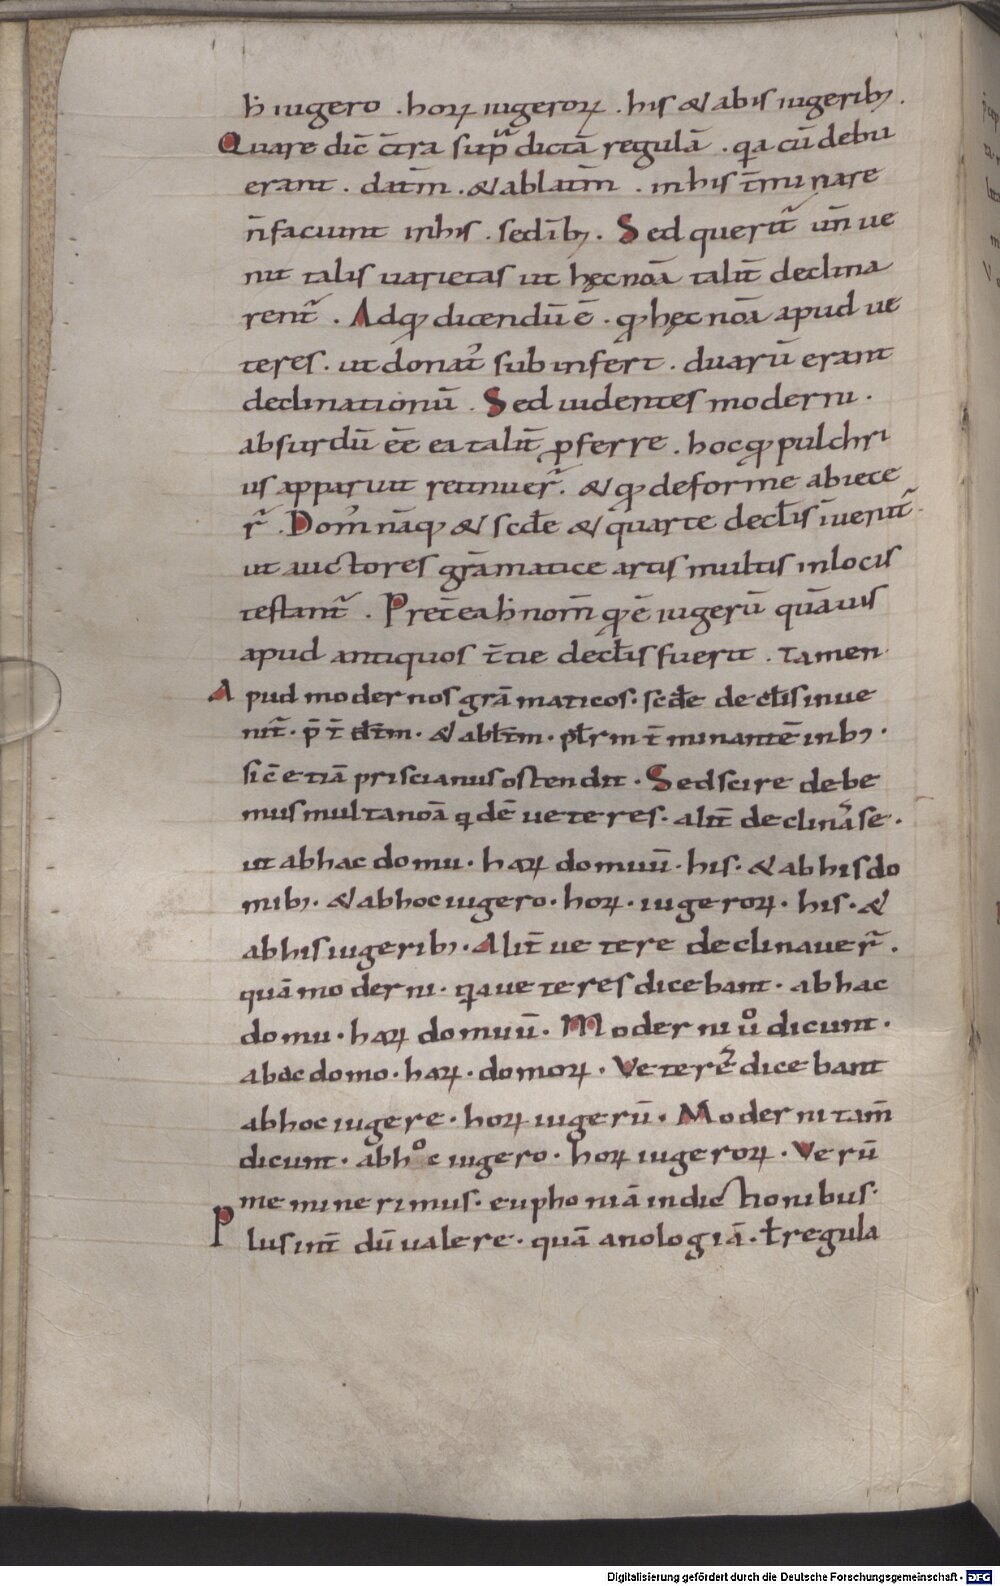 h̄ iugero . horꝝ iugerorꝝ . his & abis iugerib; .
Quare dic̄ c̄tra sup̄ dictā regulā . qa cū debu
erant . datīm . & ablatīm . in his t̄minare
n̄ faciunt in his . sed īb; . Sed querit̄ un̄ ue
nit talis uarietas ut hęc noā talit̄ declina
rent̄ . Adqd dicendū ē . qd hęc noā apud ue
teres . ut donat᾽ subinfert . duarū erant
declinationū . Sed uidentes moderni .
absurdū ēe ea talit̄ ꝓferre . hocqd pulchri
us apparuit retinuer̄ . & qd deforme abiece
r̄ . Dom᾽ nāq; & scd̄e & quarte decl̄is īuenit̄ .
ut auctores grāmatice artis multis in locis
testant̄ . Pret̄ea h̄ nom̄ qd ē iugerū quāuis
apud antiquos t̄tie decl̄is fuerit . tamen
Apud modernos grāmaticos . scd̄e decl̄is inue
nit̄ . p̄ t̄ dt̄m . & abl̄tm . pl̄rm t̄minantē in b; .
sic̄ etiā priscianus ostendit . Sed scire debe
mus multa noā qdē ueteres . alit̄ declinase .
ut ab hac domu . harꝝ domuū . his . & ab his do
mib; . & ab hoc iugero . horꝝ . iugerorꝝ . his . &
ab his iugerib; . Alit̄ uetere declinauer̄ .
quā moderni . qa ueteres dicebant . ab hac
domu . harꝝ domuū . Moderni uͦ dicunt .
abac domo . harꝝ . domorꝝ . Veterēs dicebant
ab hoc iugere . horꝝ iugerū . Moderni tam̄
dicunt . ab hoc iugero . horꝝ iugerorꝝ . Verū
meminerimus . euphoniā in dictionibus .
Plus int̄dū ualere . quā anologiā . ł regula
Digitalisierung gefördert durch die Deutsche Forschungsgemeinschaft - DFG